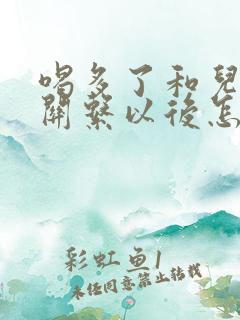 喝多了和兒
關繫以後怎
彩虹鱼1
未经同意禁止转载